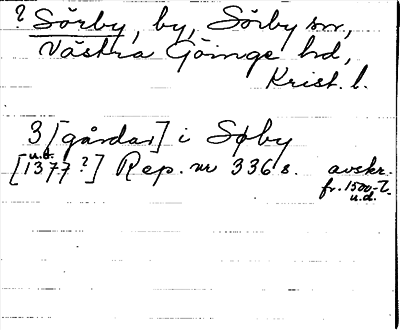 ? Sörby, by, Sörby sn,
Västra Göinge hd,
Krist. l.
3 [gårdar] i Søby
u.d.
[1377?] Rep. nr 336 s. avskr.
fr. 1500-t.
u.d.